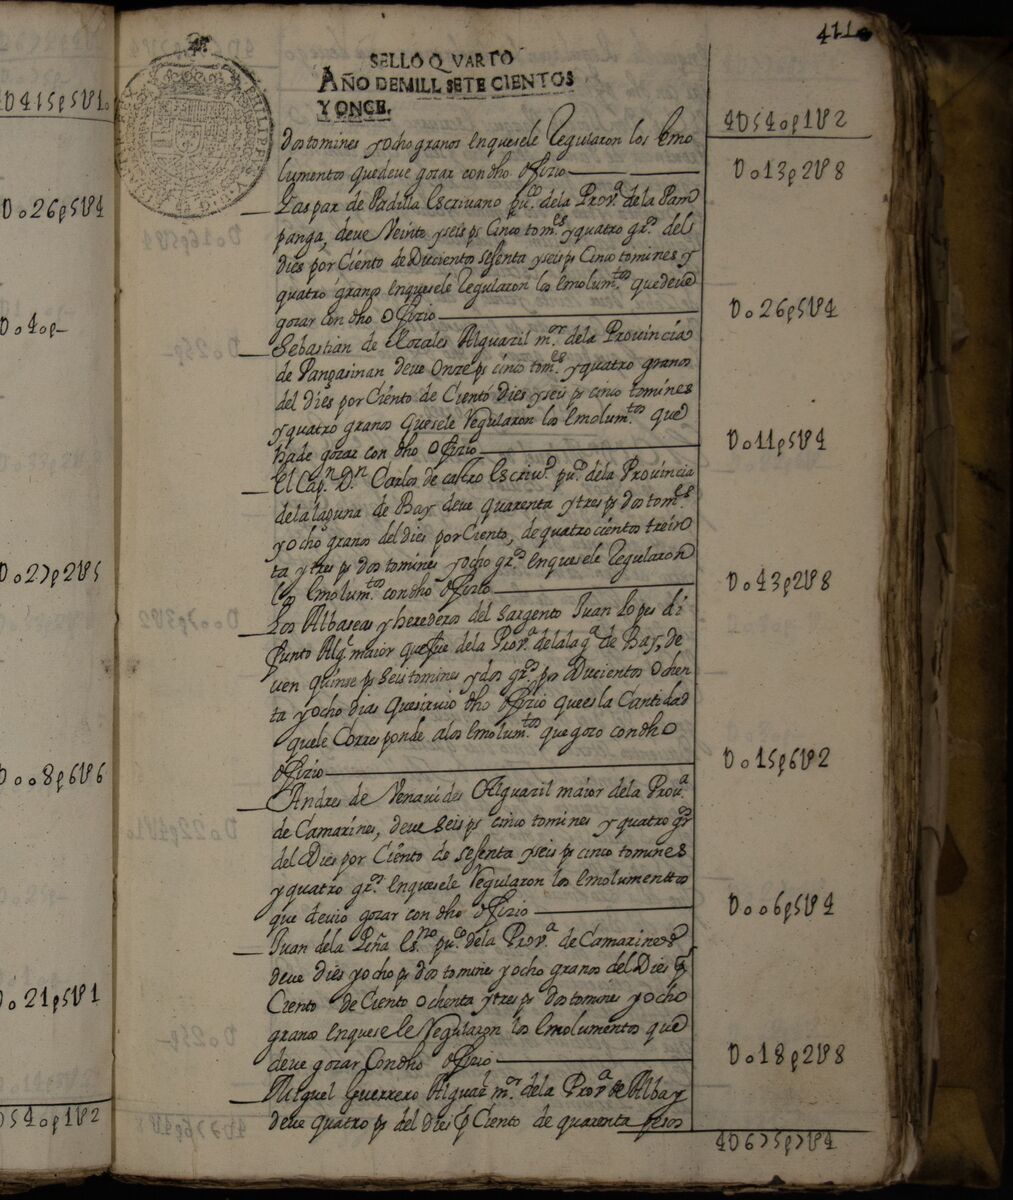 U415p5U1
Do26p5U4
Do4op-
Do27p2U5
Doo8p6U6
Do21p5U1
U54op1U2
411
SELLO QVARTO
AÑO DEMILL SETECIENTOS
Y ONCE.
PHILIPPVS
4U54op1U2
dos tomines yocho granos enquesele Regularon los Emo
lumentos quedeve gozar con dho offizio
Do13p2U8
Gaspar de Padilla Escrivano pu.co dela Prov.a de la Pam
panga, deve Veinte yseis ps Cinco tom.es yquatro gr.s del
dies por Ciento de Ducientos sesenta yseis ps Cinco tomines y
quatro granos enquesele Regularon los emolum.tos quedeve
gozar con dho offizio
Do26p5U4
Sebastian de Rozales Alguazil m.or de la Provincia
de Pangasinan deve Onze ps cinco tom.es yquatro granos
del dies por Ciento de Ciento dies yseis ps cinco tomines
yquatro granos quesele Regularon los emolum.tos que
hade gozar con dho offizio
Do11p5U4
El Cap.n D.n Carlos de castro Escriv.o pu.co dela Provincia
delalaguna de Bay deve quarenta ytres ps dos tom.es
yocho granos del dies por Ciento, de quatrocientos trein
ta ytres ps dos tomines yocho gr.s enquesele Regularon
los Emolum.tos con dho offizio
Do43p2U8
Los Albaseas y herederos del sargento Juan Lopes di
funto Alg.l maior que fue dela Prov.a delalag.a de Bay, de
ven quinse ps seis tomines ydos gr.s por Ducientos Ochen
ta yocho dias quesirvio dho offizio quees la Cantidad
quele Corresponde alos Emolum.tos que gozo con dho
offizio
Do15p6U2
Andres de Venavides Alguazil maior dela Prov.a
de Camarines, deve seis ps cinco tomines y quatro gr.s
del Dies por Ciento de sesenta yseis ps cinco tomines
yquatro gr.s enquesele Regularon los Emolumenttos
que devio gozar con dho offizio
Doo6p5U4
Juan dela Peña Es.no pu.co dela Prov.a de Camarines
deve dies yocho ps dos tomines yocho granos del Dies p
Ciento de Ciento Ochenta ytres ps dos tomines yocho
granos enquesele Regularon los Emolumentos que
deve gozar Con dho offizio
Do18p2U8
Miguel Guerrero Alguazl m.or dela Prov.a de Albay
deve quatro ps del dies p Ciento de quarenta pesos
4U675p7U4